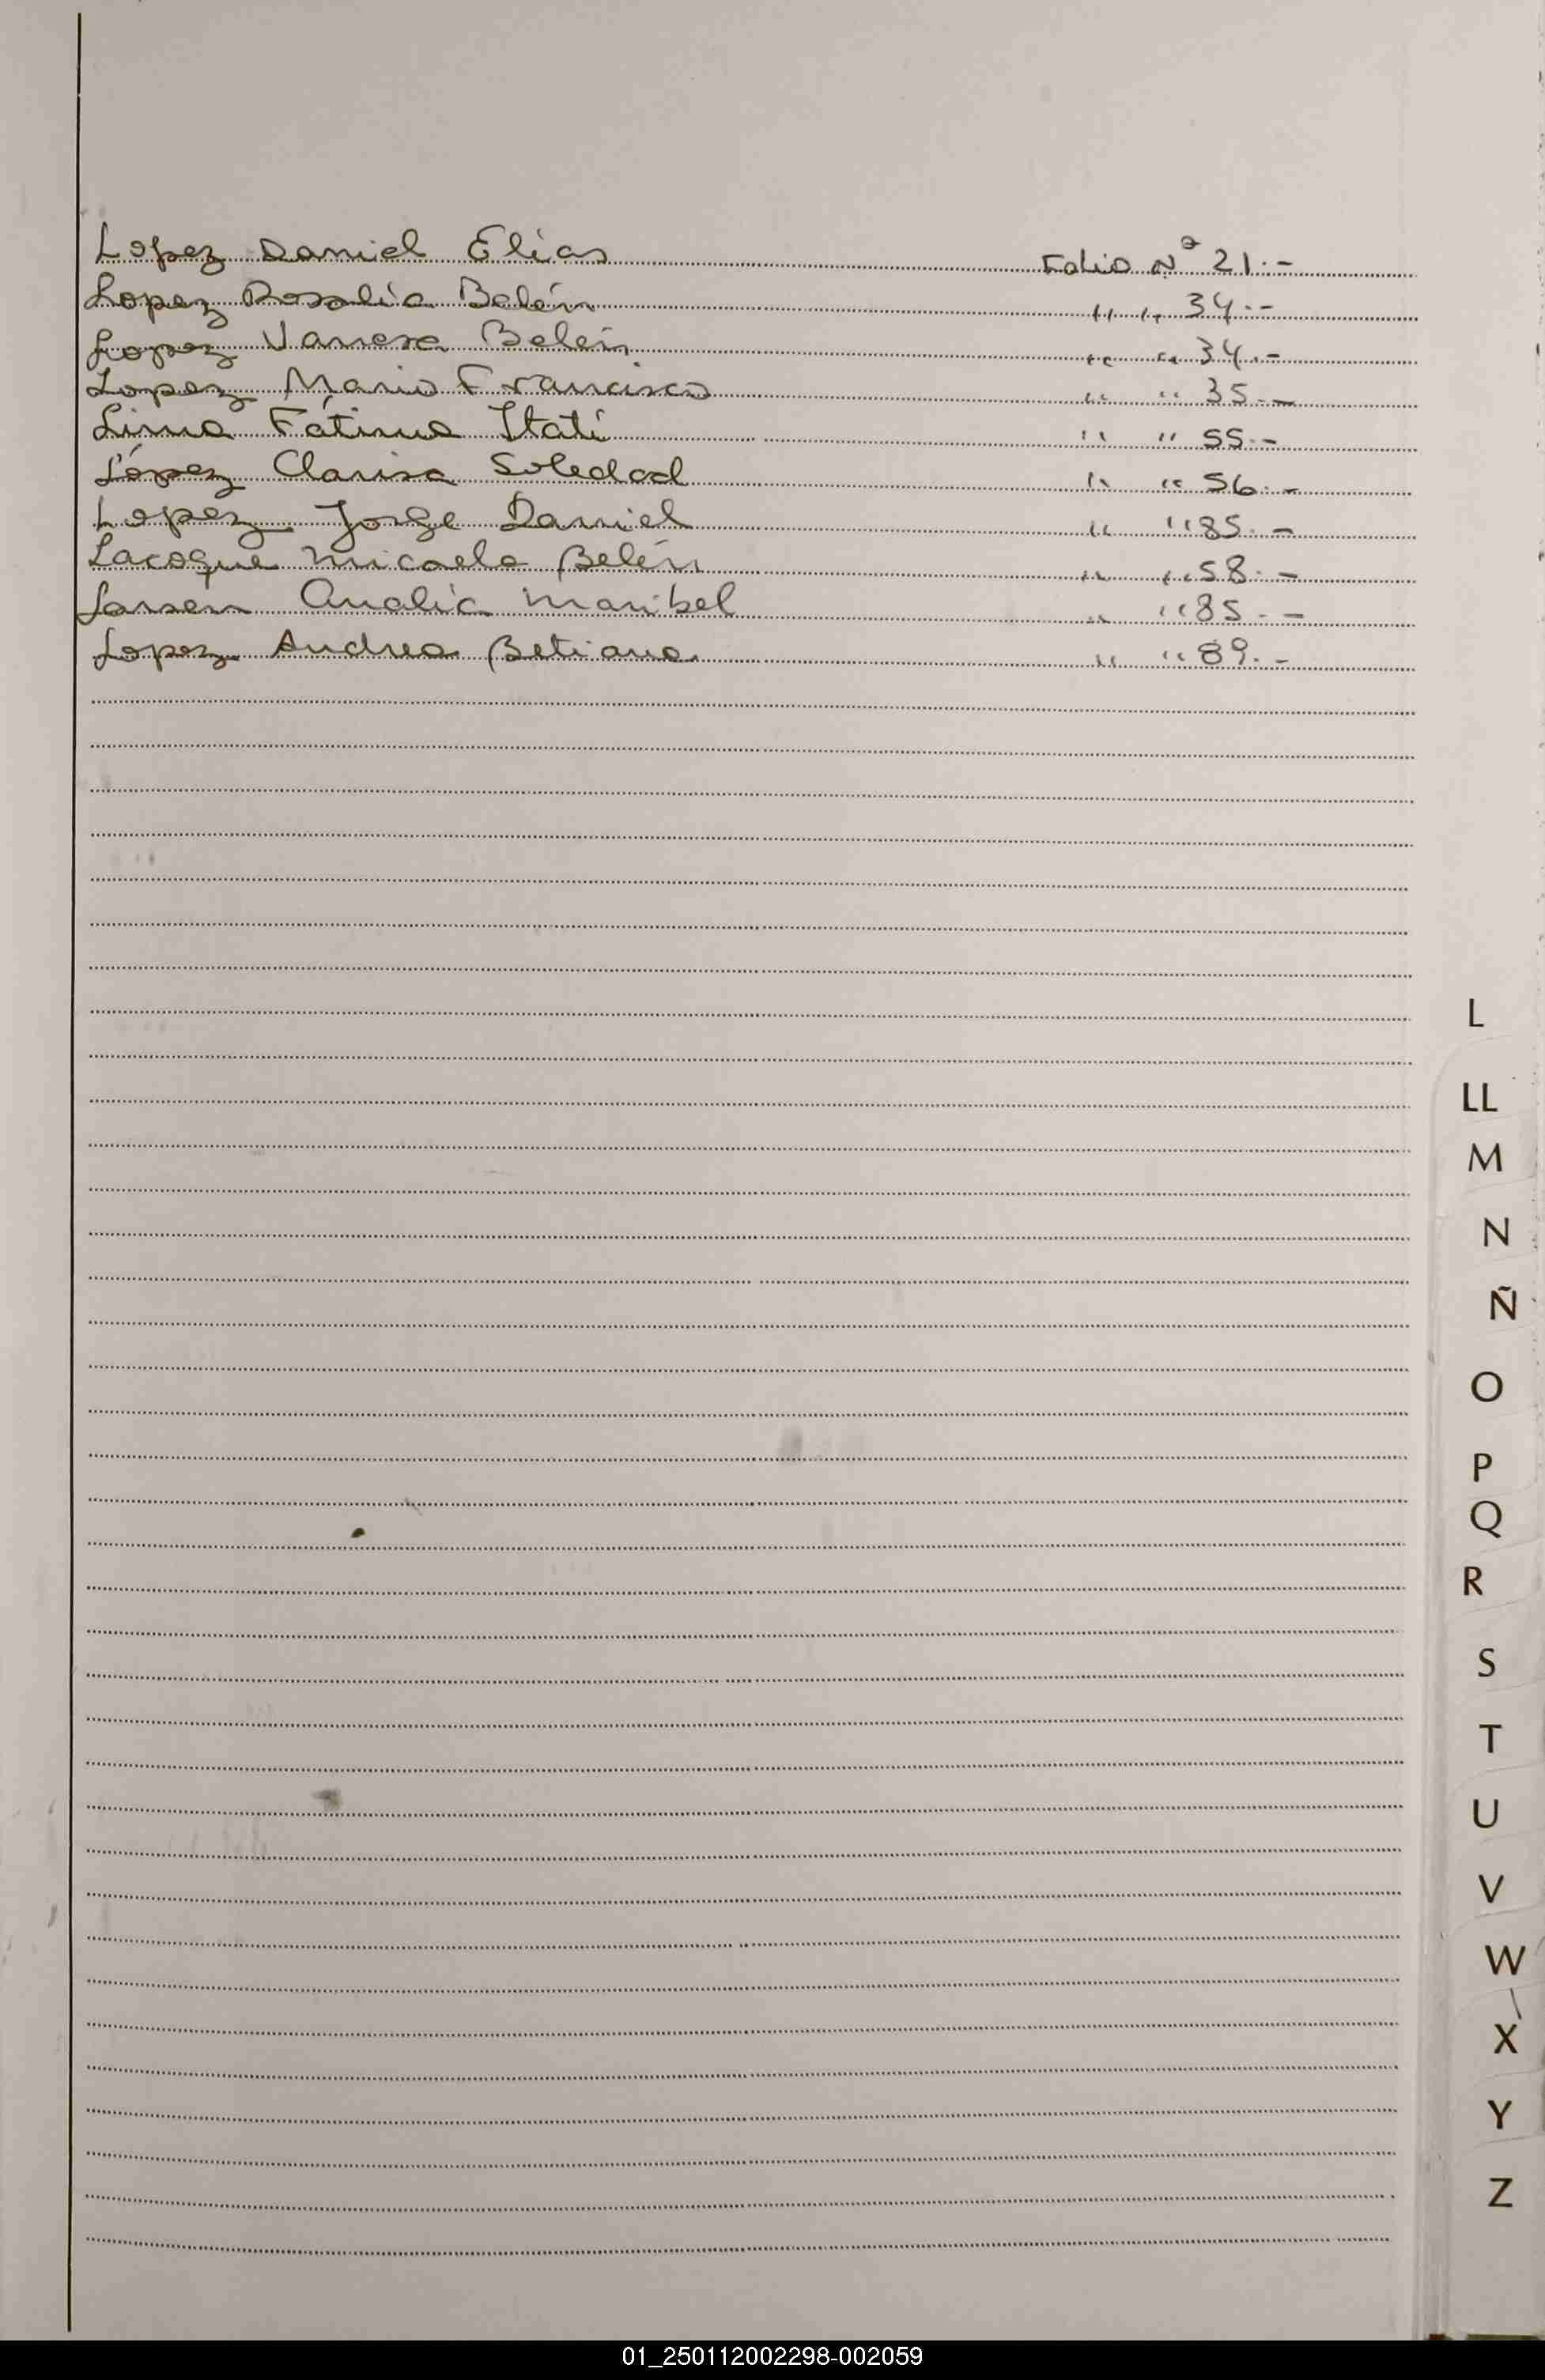 Lopez Daniel Elías Folio Nº 21.-
Lopez Rosalía Belén " " 34.-
Lopez Vanesa Belén " " 34.-
Lopez Mario Francisco " " 35.-
Lima Fátima Itatí " " 55.-
López Clarisa Soledad " " 56.-
Lopez Jorge Daniel " " 85.-
Lacoque Micaela Belén " " 58.-
Larsen Analía Maribel " " 85.-
Lopez Andrea Betiana " " 89.-
L
LL
M
N
Ñ
O
P
Q
R
S
T
U
V
W
X
Y
Z
01_250112002298-002059